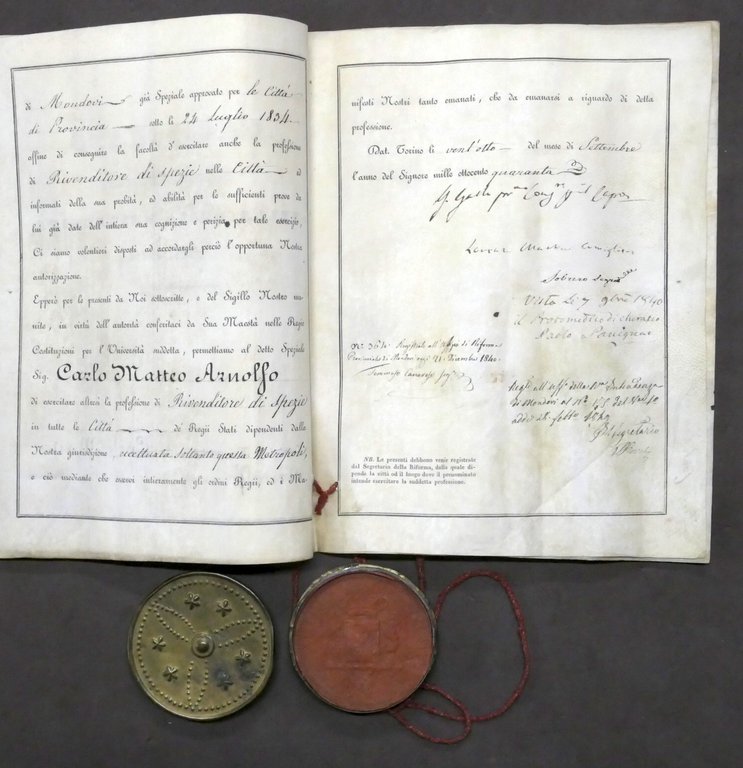 di Mondovì già Speziale approvato per le Città
di Provincia sotto li 24 Luglio 1834
affine di conseguire la facoltà d'esercitare anche la professione
di Rivenditore di spezie nelle Città ed
informati della sua probità, ed abilità per le sufficienti prove da
lui già date dell'intiera sua cognizione e perizia per tale esercizio,
Ci siamo volentieri disposti ad accordargli perciò l'opportuna Nostra
autorizzazione.
Epperò per le presenti da Noi sottoscritte, e del Sigillo Nostro mu-
nite, in virtù dell'autorità conferitaci da Sua Maestà nelle Regie
Costituzioni per l'Università suddetta, permettiamo al detto Speziale
Sig. Carlo Matteo Arnolfo
di esercitare altresì la professione di Rivenditore di spezie
in tutte le Città de' Regii Stati dipendenti dalla
Nostra giurisdizione eccettuata soltanto questa Metropoli,
e ciò mediante che osservi intieramente gli ordini Regii, ed i Ma-
nifesti Nostri tanto emanati, che da emanarsi a riguardo di detta
professione.
Dat. Torino li vent'otto del mese di Settembre
l'anno del Signore mille ottocento quaranta
Visto
il Protomedico
Paolo
Registrata all'Uffizio di Riforma
Provinciale di Mondovì oggi 21 Dicembre 1840
Tommaso
di Mondovì al
Segretario
NB. Le presenti debbono venir registrate
dal Segretario della Riforma, dalla quale di-
pende la città od il luogo dove il prenominato
intende esercitare la suddetta professione.